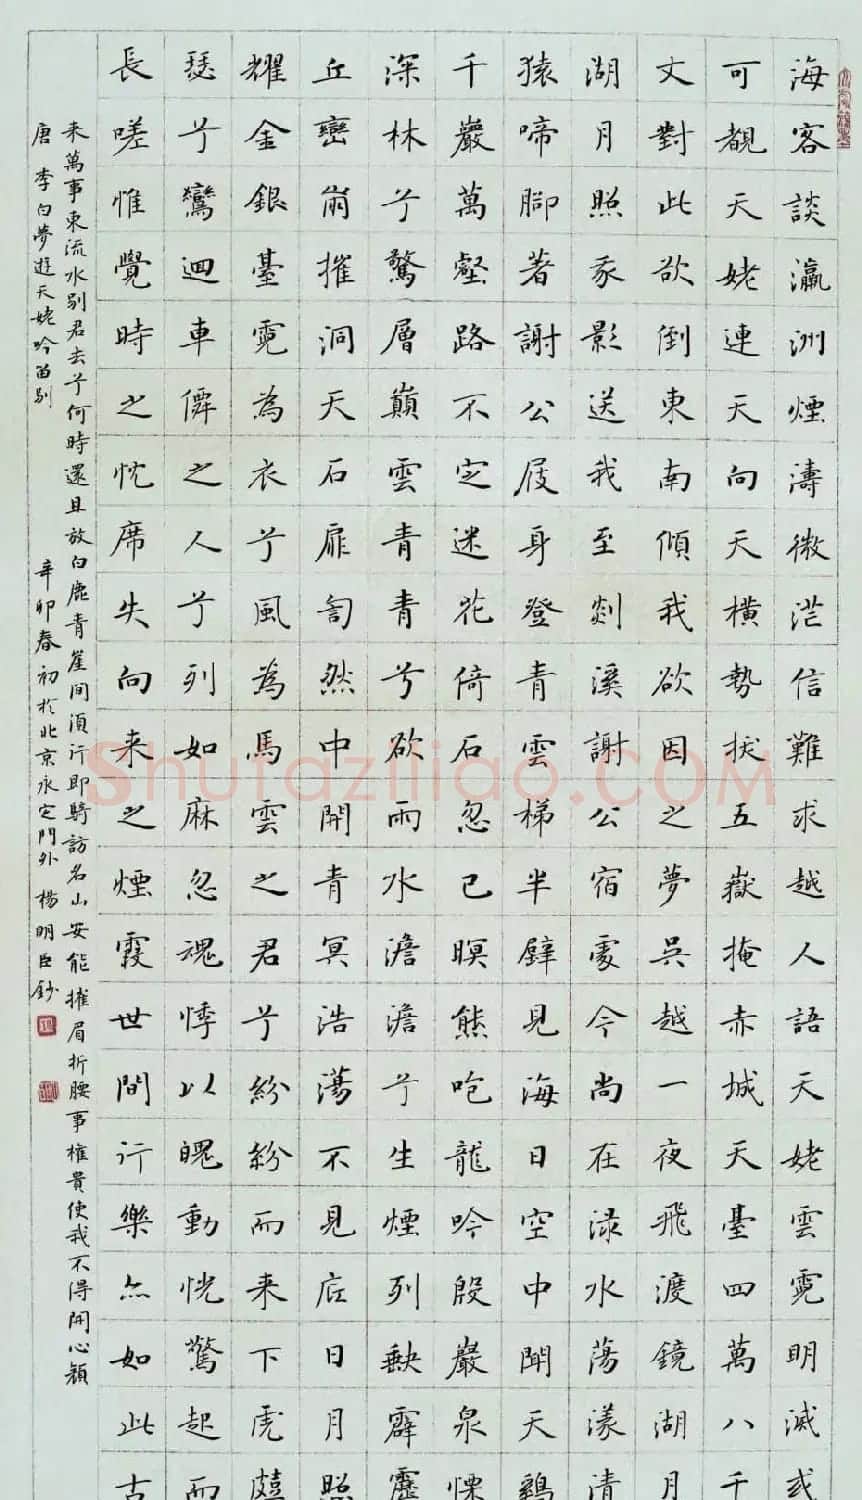 海客談瀛洲煙濤微茫信難求越人語天姥雲霓明滅或
可覩天姥連天向天橫勢拔五嶽掩赤城天臺四萬八千
丈對此欲倒東南傾我欲因之夢吳越一夜飛渡鏡湖月
湖月照我影送我至剡溪謝公宿處今尚在淥水蕩漾清
猿啼腳著謝公屐身登青雲梯半壁見海日空中聞天鷄
千巖萬壑路不定迷花倚石忽已暝熊咆龍吟殷巖泉慄
深林兮驚層巔雲青青兮欲雨水澹澹兮生煙列缺霹靂
丘巒崩摧洞天石扉訇然中開青冥浩蕩不見底日月照
耀金銀臺霓為衣兮風為馬雲之君兮紛紛而来下虎皷
瑟兮鸞迴車僊之人兮列如麻忽魂悸以魄動恍驚起而
長嗟惟覺時之枕席失向来之煙霞世間行樂亦如此古
来萬事東流水別君去兮何時還且放白鹿青崖間須行即騎訪名山安能摧眉折腰事權貴使我不得開心顏
唐李白夢遊天姥吟留別 辛卯春初於北京永定門外楊明臣鈔
Shufaziliao.COM